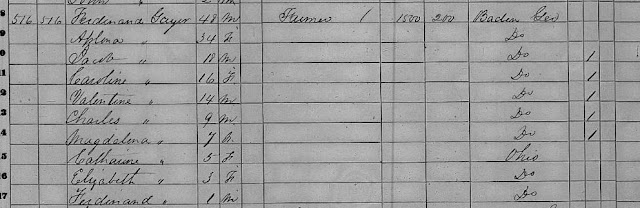 8 516 516 Ferdinand Gayer 48 M Farmer 1 1500 200 Baden Ger
9 Aplona " 34 F Do
0 Jacob " 18 M Do 1
1 Caroline " 16 F Do 1
2 Valentine " 14 M Do 1
3 Charles " 9 M Do 1
4 Magdalina " 7 Do 1
5 Catharine " 5 F Ohio
6 Elizabeth " 3 F Do
17 Ferdinand " 1 M Do